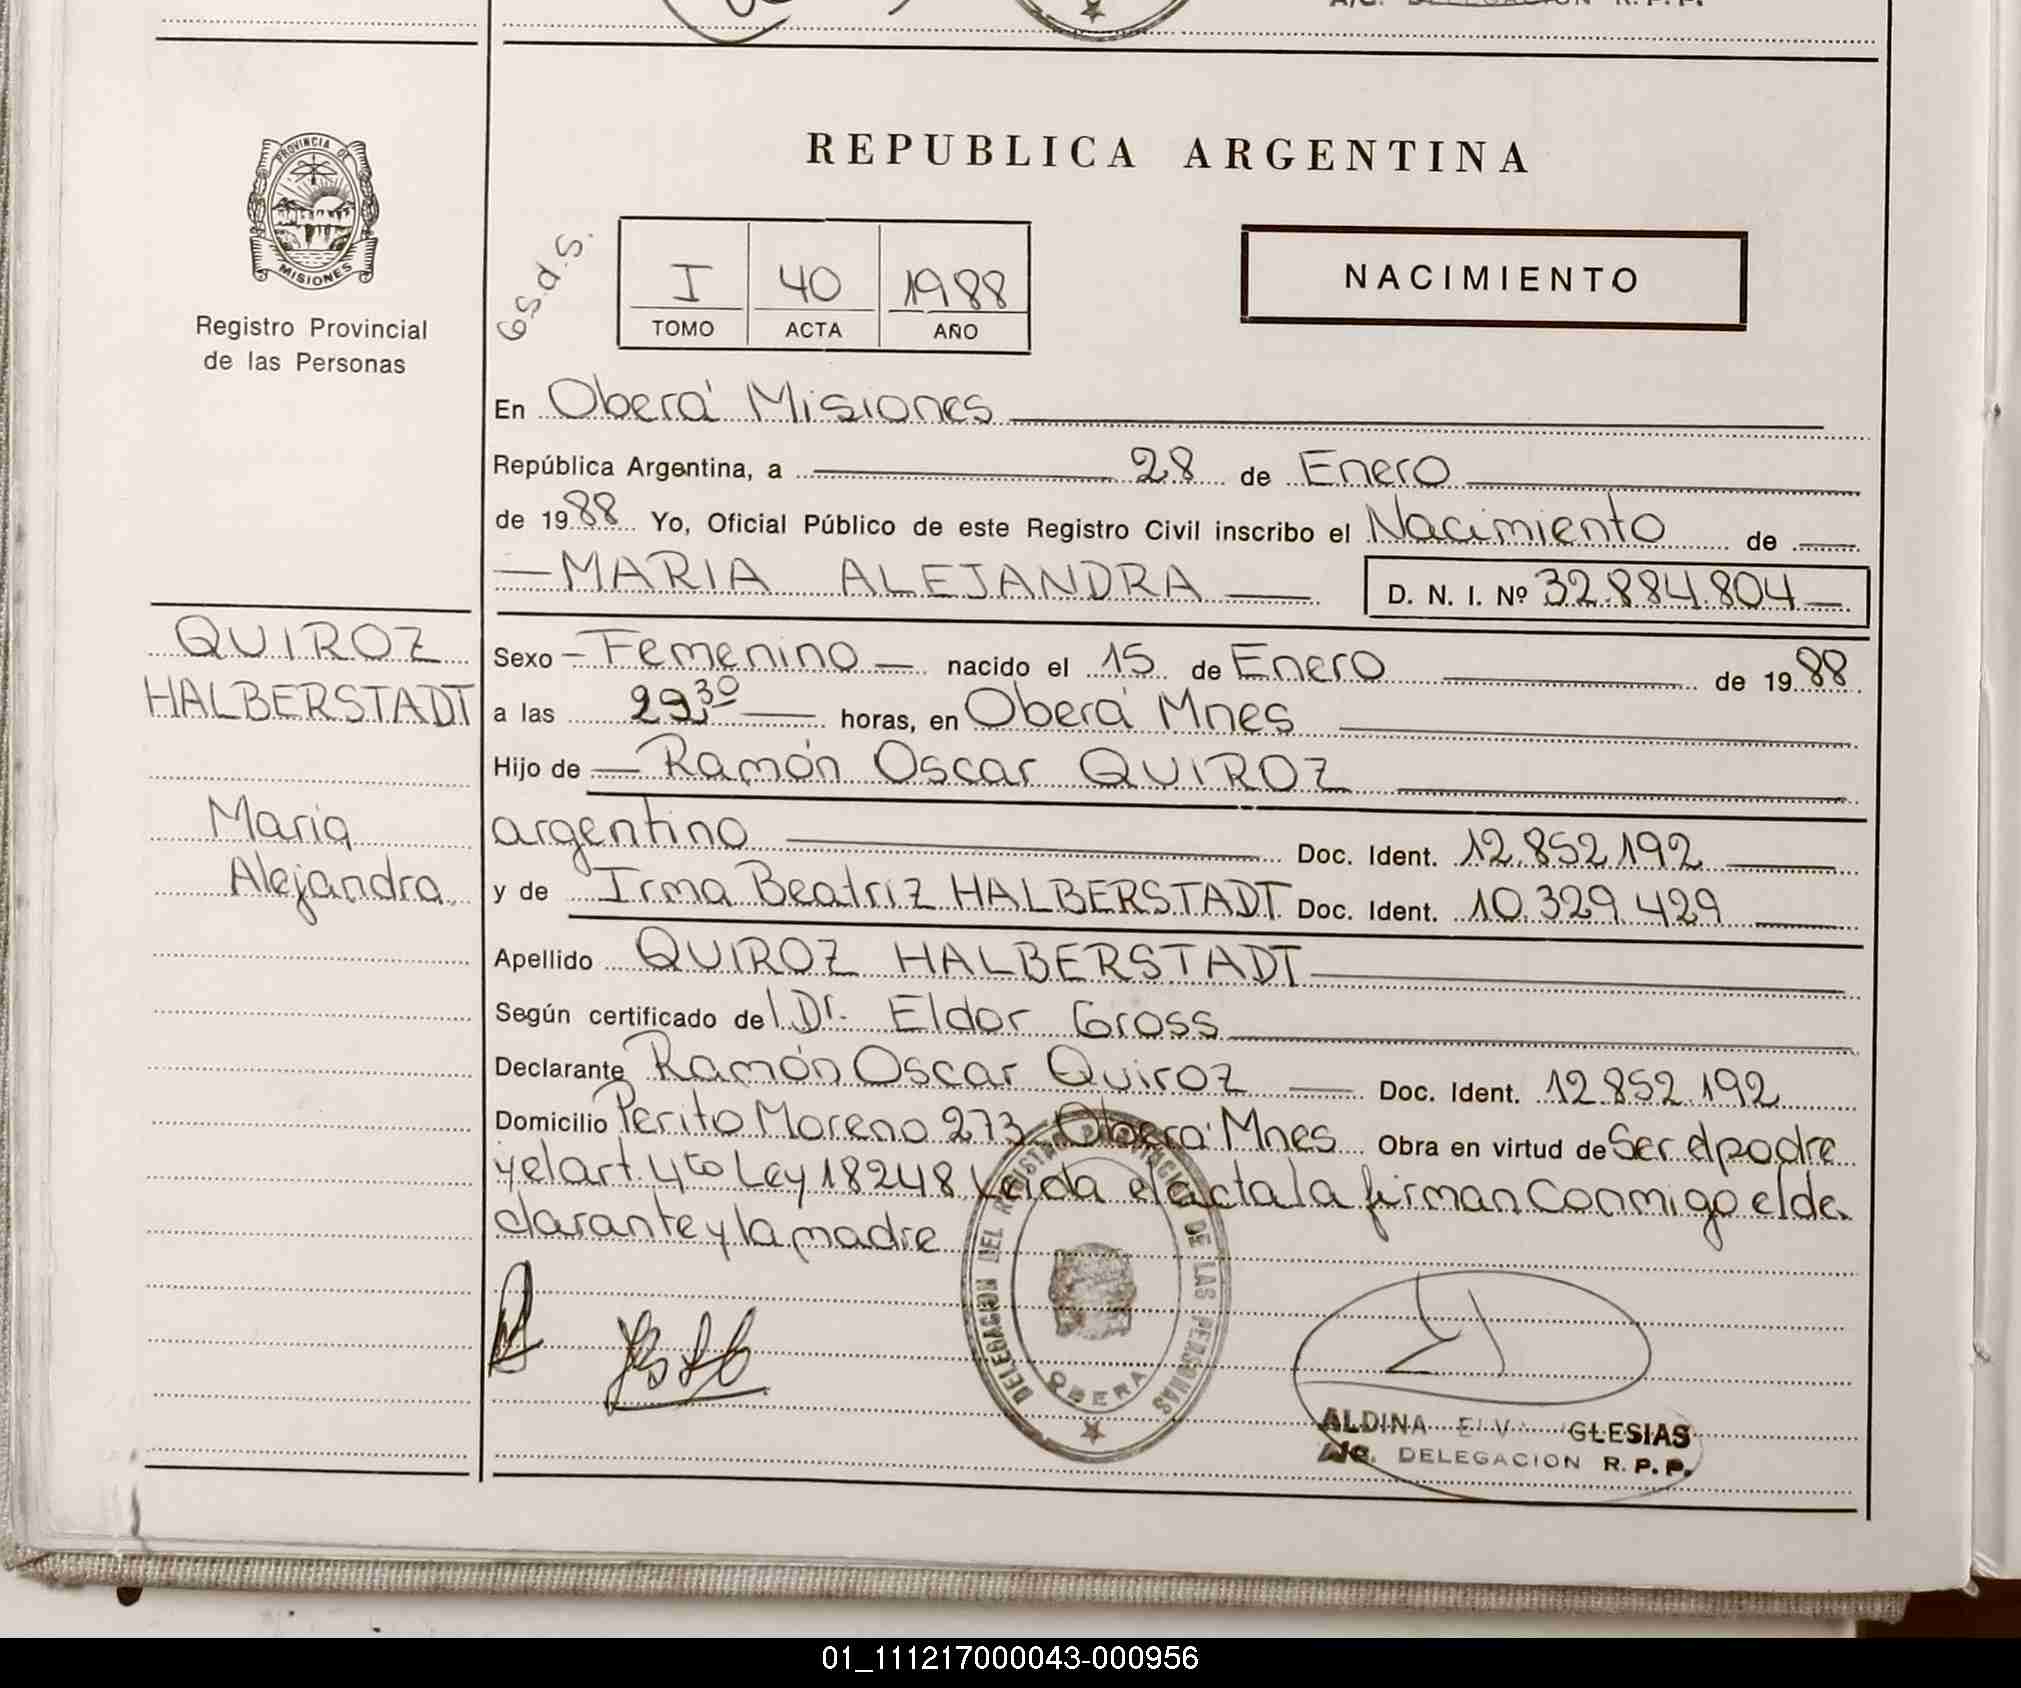 PROVINCIA DE
MISIONES
Registro Provincial
de las Personas
REPUBLICA ARGENTINA
Gs.d.s.
I 40 1988
TOMO ACTA AÑO
NACIMIENTO
En Oberá Misiones
República Argentina, a 28 de Enero
de 1988 Yo, Oficial Público de este Registro Civil inscribo el Nacimiento de
MARIA ALEJANDRA D. N. I. Nº 32.884.804
QUIROZ
HALBERSTADT
Maria
Alejandra
Sexo Femenino nacido el 15 de Enero de 1988
a las horas, en Oberá Mnes
Hijo de Ramón Oscar QUIROZ
argentino Doc. Ident. 12.852.192
y de Irma Beatriz HALBERSTADT Doc. Ident. 10.329.429
Apellido QUIROZ HALBERSTADT
Según certificado del Dr. Eldor Gross
Declarante Ramón Oscar Quiroz Doc. Ident. 12.852.192
Domicilio Perito Moreno 273 Oberá Mnes Obra en virtud de Ser el padre
y el art. 4to Ley 18248 Leida el acta la firman Conmigo el de
clarante y la madre
DELEGACION DEL REGISTRO PROVINCIAL DE LAS PERSONAS
OBERA
ALDINA IGLESIAS
A/c. DELEGACION R.P.P.
01_111217000043-000956